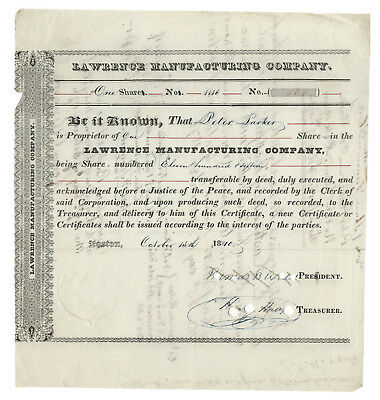 LAWRENCE MANUFACTURING COMPANY.
One Share, Nos. 1116 No.
Be it Known, That Peter Parker
is Proprietor of One Share in the
LAWRENCE MANUFACTURING COMPANY,
being Share numbered Eleven hundred
transferable by deed, duly executed, and
acknowledged before a Justice of the Peace, and recorded by the Clerk of
said Corporation, and upon producing such deed, so recorded, to the
Treasurer, and delivery to him of this Certificate, a new Certificate or
Certificates shall be issued according to the interest of the parties.
Boston, October 184
PRESIDENT.
TREASURER.
LAWRENCE MANUFACTURING COMPANY.